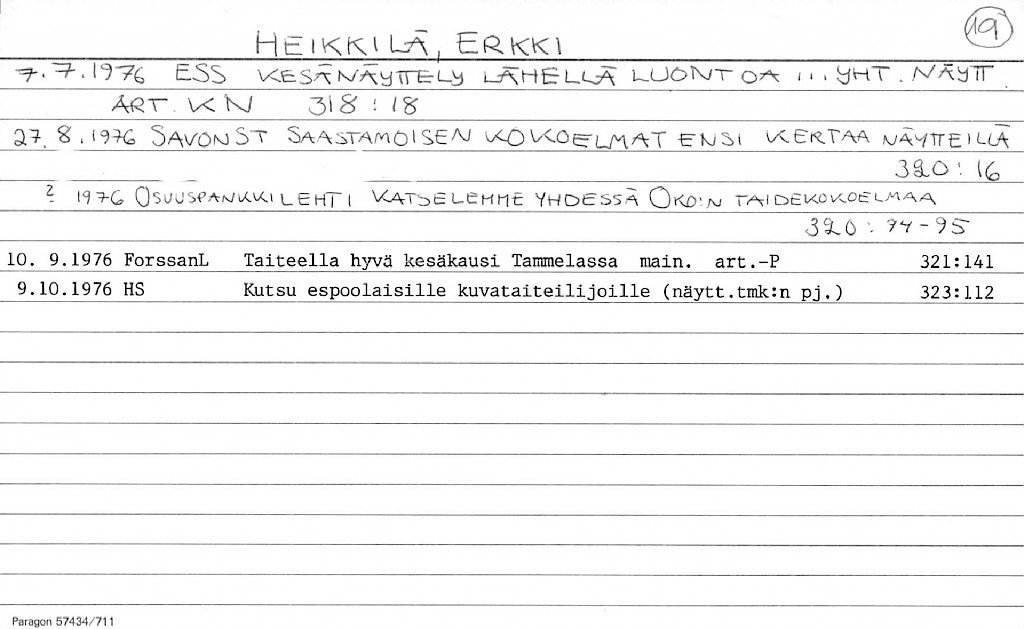 19
HEIKKILÄ, ERKKI
7.7.1976 ESS KESÄNÄYTTELY LÄHELLÄ LUONTOA ... YHT. NÄYTT.
ART. KN 318:18
27.8.1976 SAVONST SAASTAMOISEN KOKOELMAT ENSI KERTAA NÄYTTEILLÄ
320:16
? 1976 OSUUSPANKKILEHTI KATSELEMME YHDESSÄ OKO:N TAIDEKOKOELMAA
320:94-95
10. 9.1976 ForssanL Taiteella hyvä kesäkausi Tammelassa main. art.-P 321:141
9.10.1976 HS Kutsu espoolaisille kuvataiteilijoille (näytt.tmk:n pj.) 323:112
Paragon 57434/711